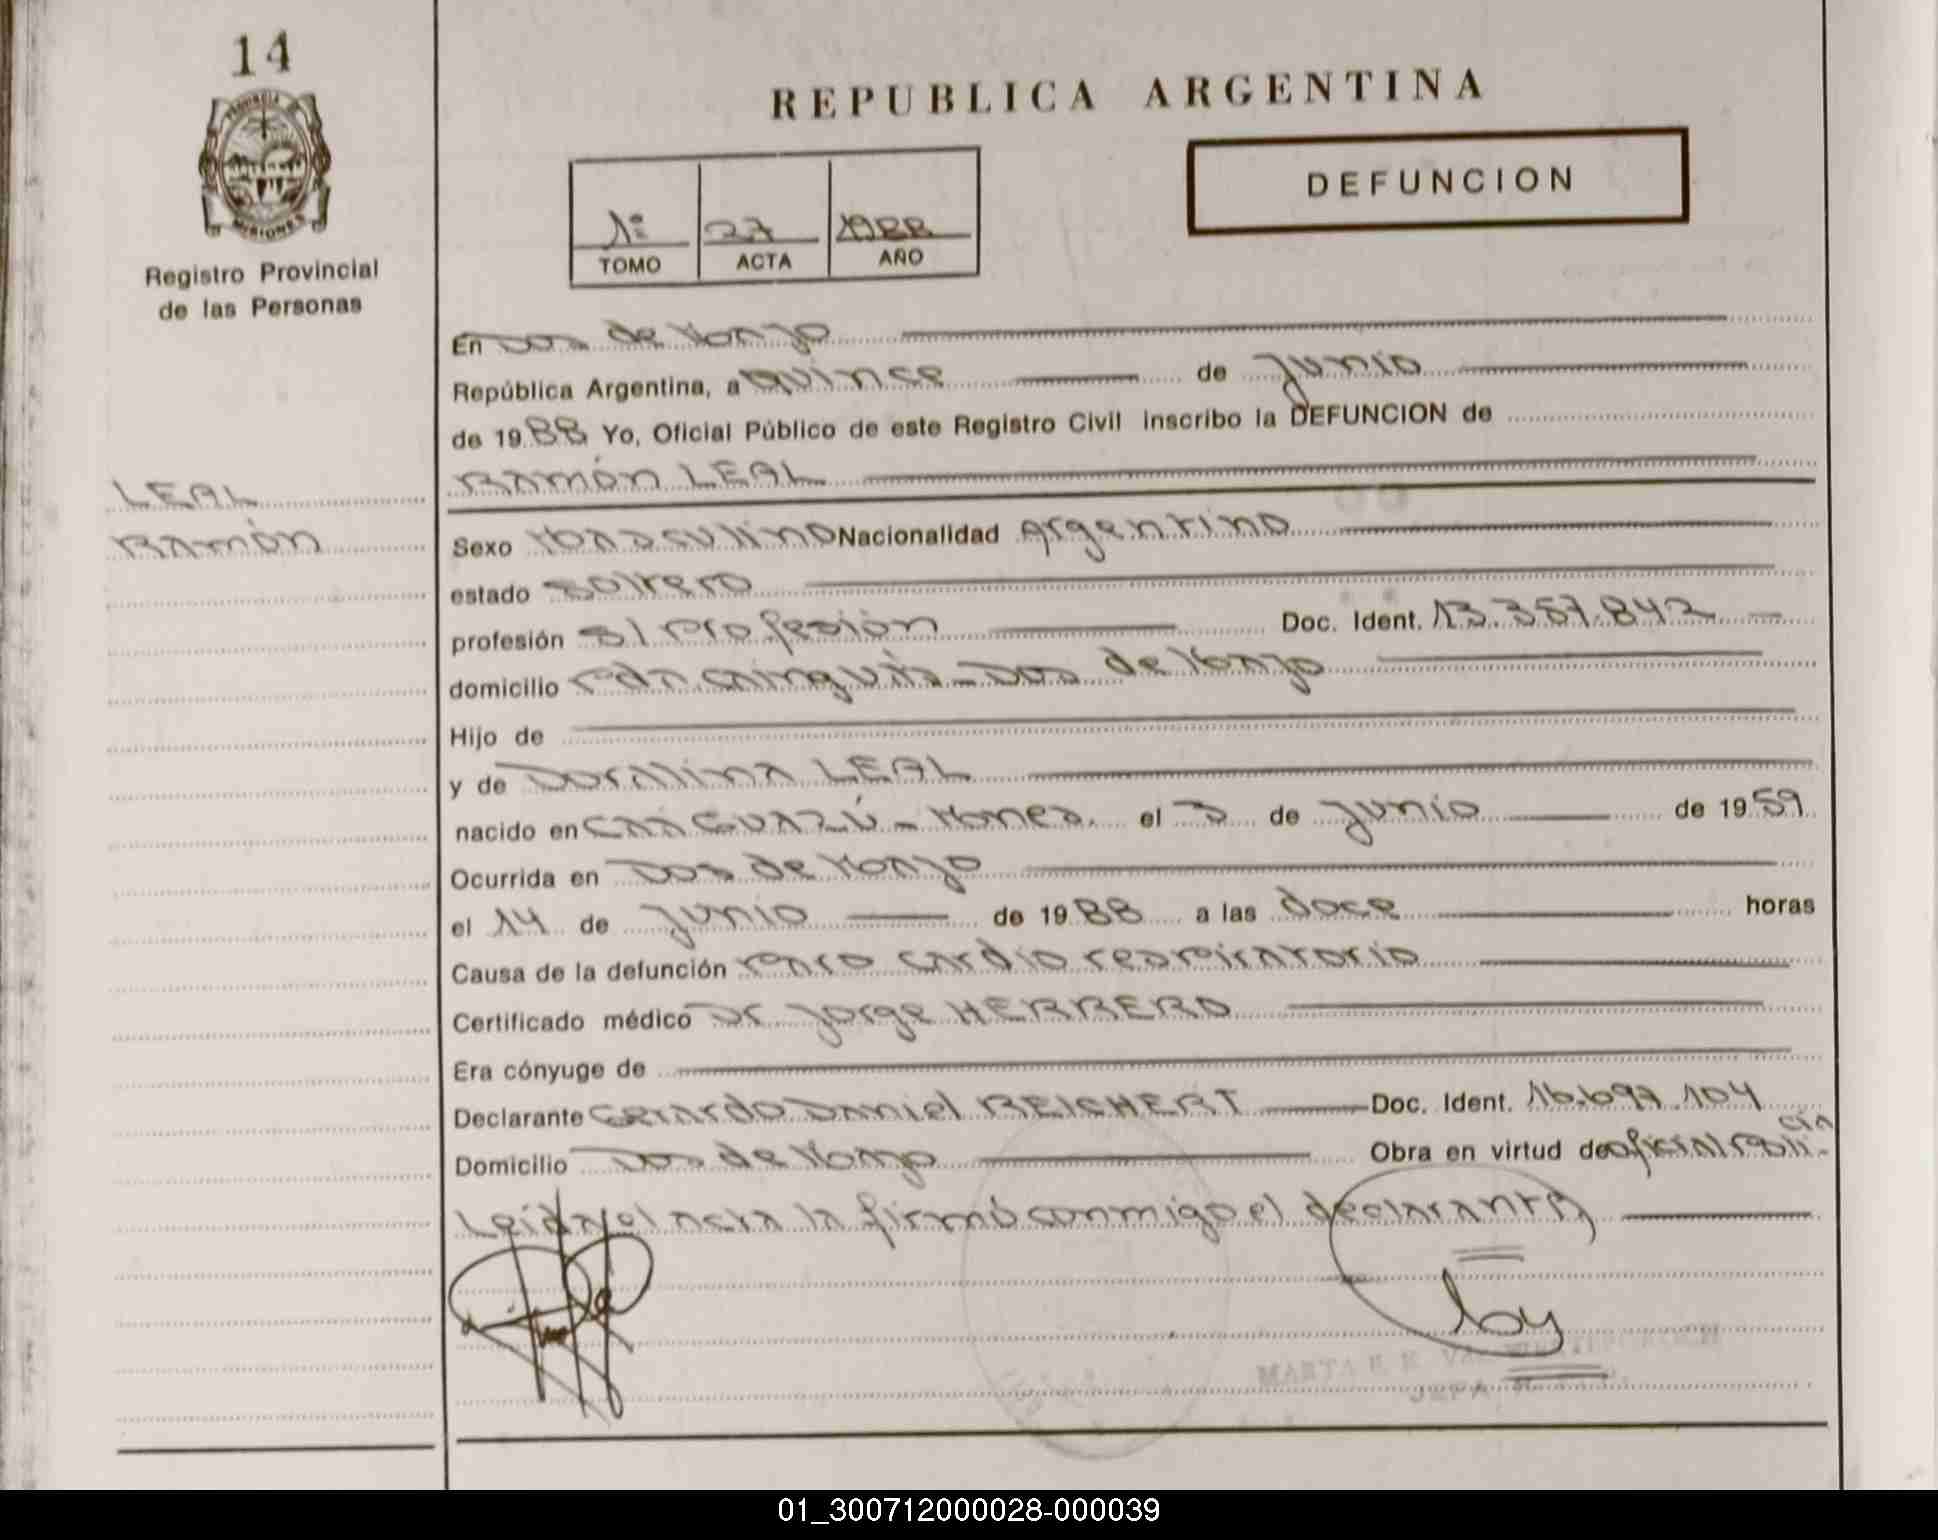 14
REPUBLICA ARGENTINA
DEFUNCION
PROVINCIA DE
MISIONES
Registro Provincial
de las Personas
1º 27 1988
TOMO ACTA AÑO
En Dos de Mayo
República Argentina, a quince de junio
de 1988 Yo, Oficial Público de este Registro Civil inscribo la DEFUNCION de
RAMÓN LEAL
LEAL
RAMÓN
Sexo Masculino Nacionalidad Argentino
estado soltero
profesión s/ profesión Doc. Ident. 13.357.842
domicilio Pdn. Cainguás - Dos de Mayo
Hijo de
y de Doralina LEAL
nacido en CAAGUAZÚ - Mones. el 3 de junio de 1959
Ocurrida en Dos de Mayo
el 14 de junio de 1988 a las doce horas
Causa de la defunción paro cardio respiratorio
Certificado médico Dr Jorge HERRERO
Era cónyuge de
Declarante Gerardo Daniel REICHERT Doc. Ident. 16.697.104
Domicilio Dos de Mayo Obra en virtud de oficial Policía
Leída el acta la firmó conmigo el declarante
MARTA
JEFA
01_300712000028-000039